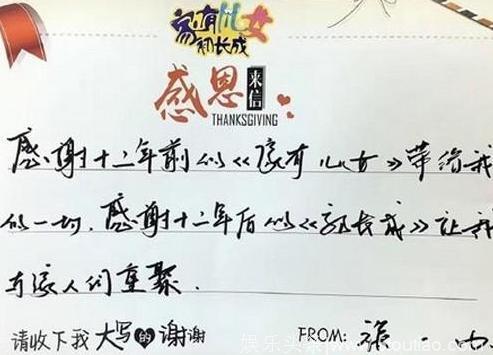 家有儿女
初长成
感恩来信
THANKSGIVING
感谢十二年前的《家有儿女》带给我
的一切.感谢十二年后的《初长成》让我
与家人们重聚.
请收下我大写的谢谢 FROM: 张
娱乐头条/www.toutiao.com